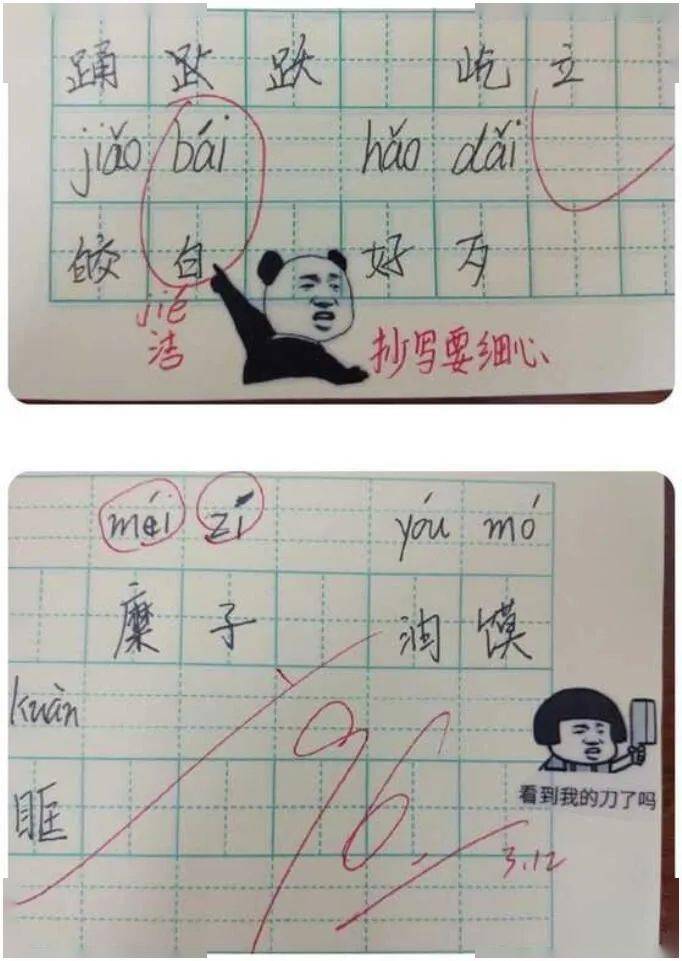 踊 跃 跌 屹 立
jiǎo bái hǎo dǎi
皎 白 好 歹
jié
洁
抄写要细心、
méi zí yóu mó
糜 子 油 馍
kuàn
眶
96
3.12
看到我的刀了吗